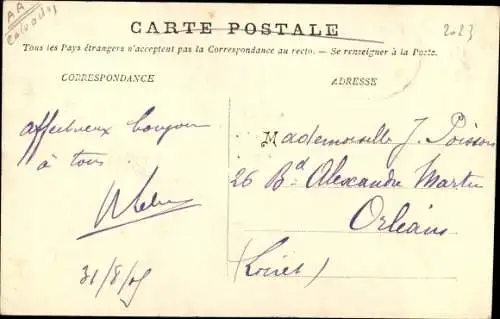 AA
Calvados
CARTE POSTALE
2023
Tous les Pays étrangers n'acceptent pas la Correspondance au recto. — Se renseigner à la Poste.
CORRESPONDANCE
ADRESSE
affectueux bonjour
à tous
31/8/05
Mademoiselle J. Poisson
26 Bd Alexandre Martin
Orléans
(Loiret)